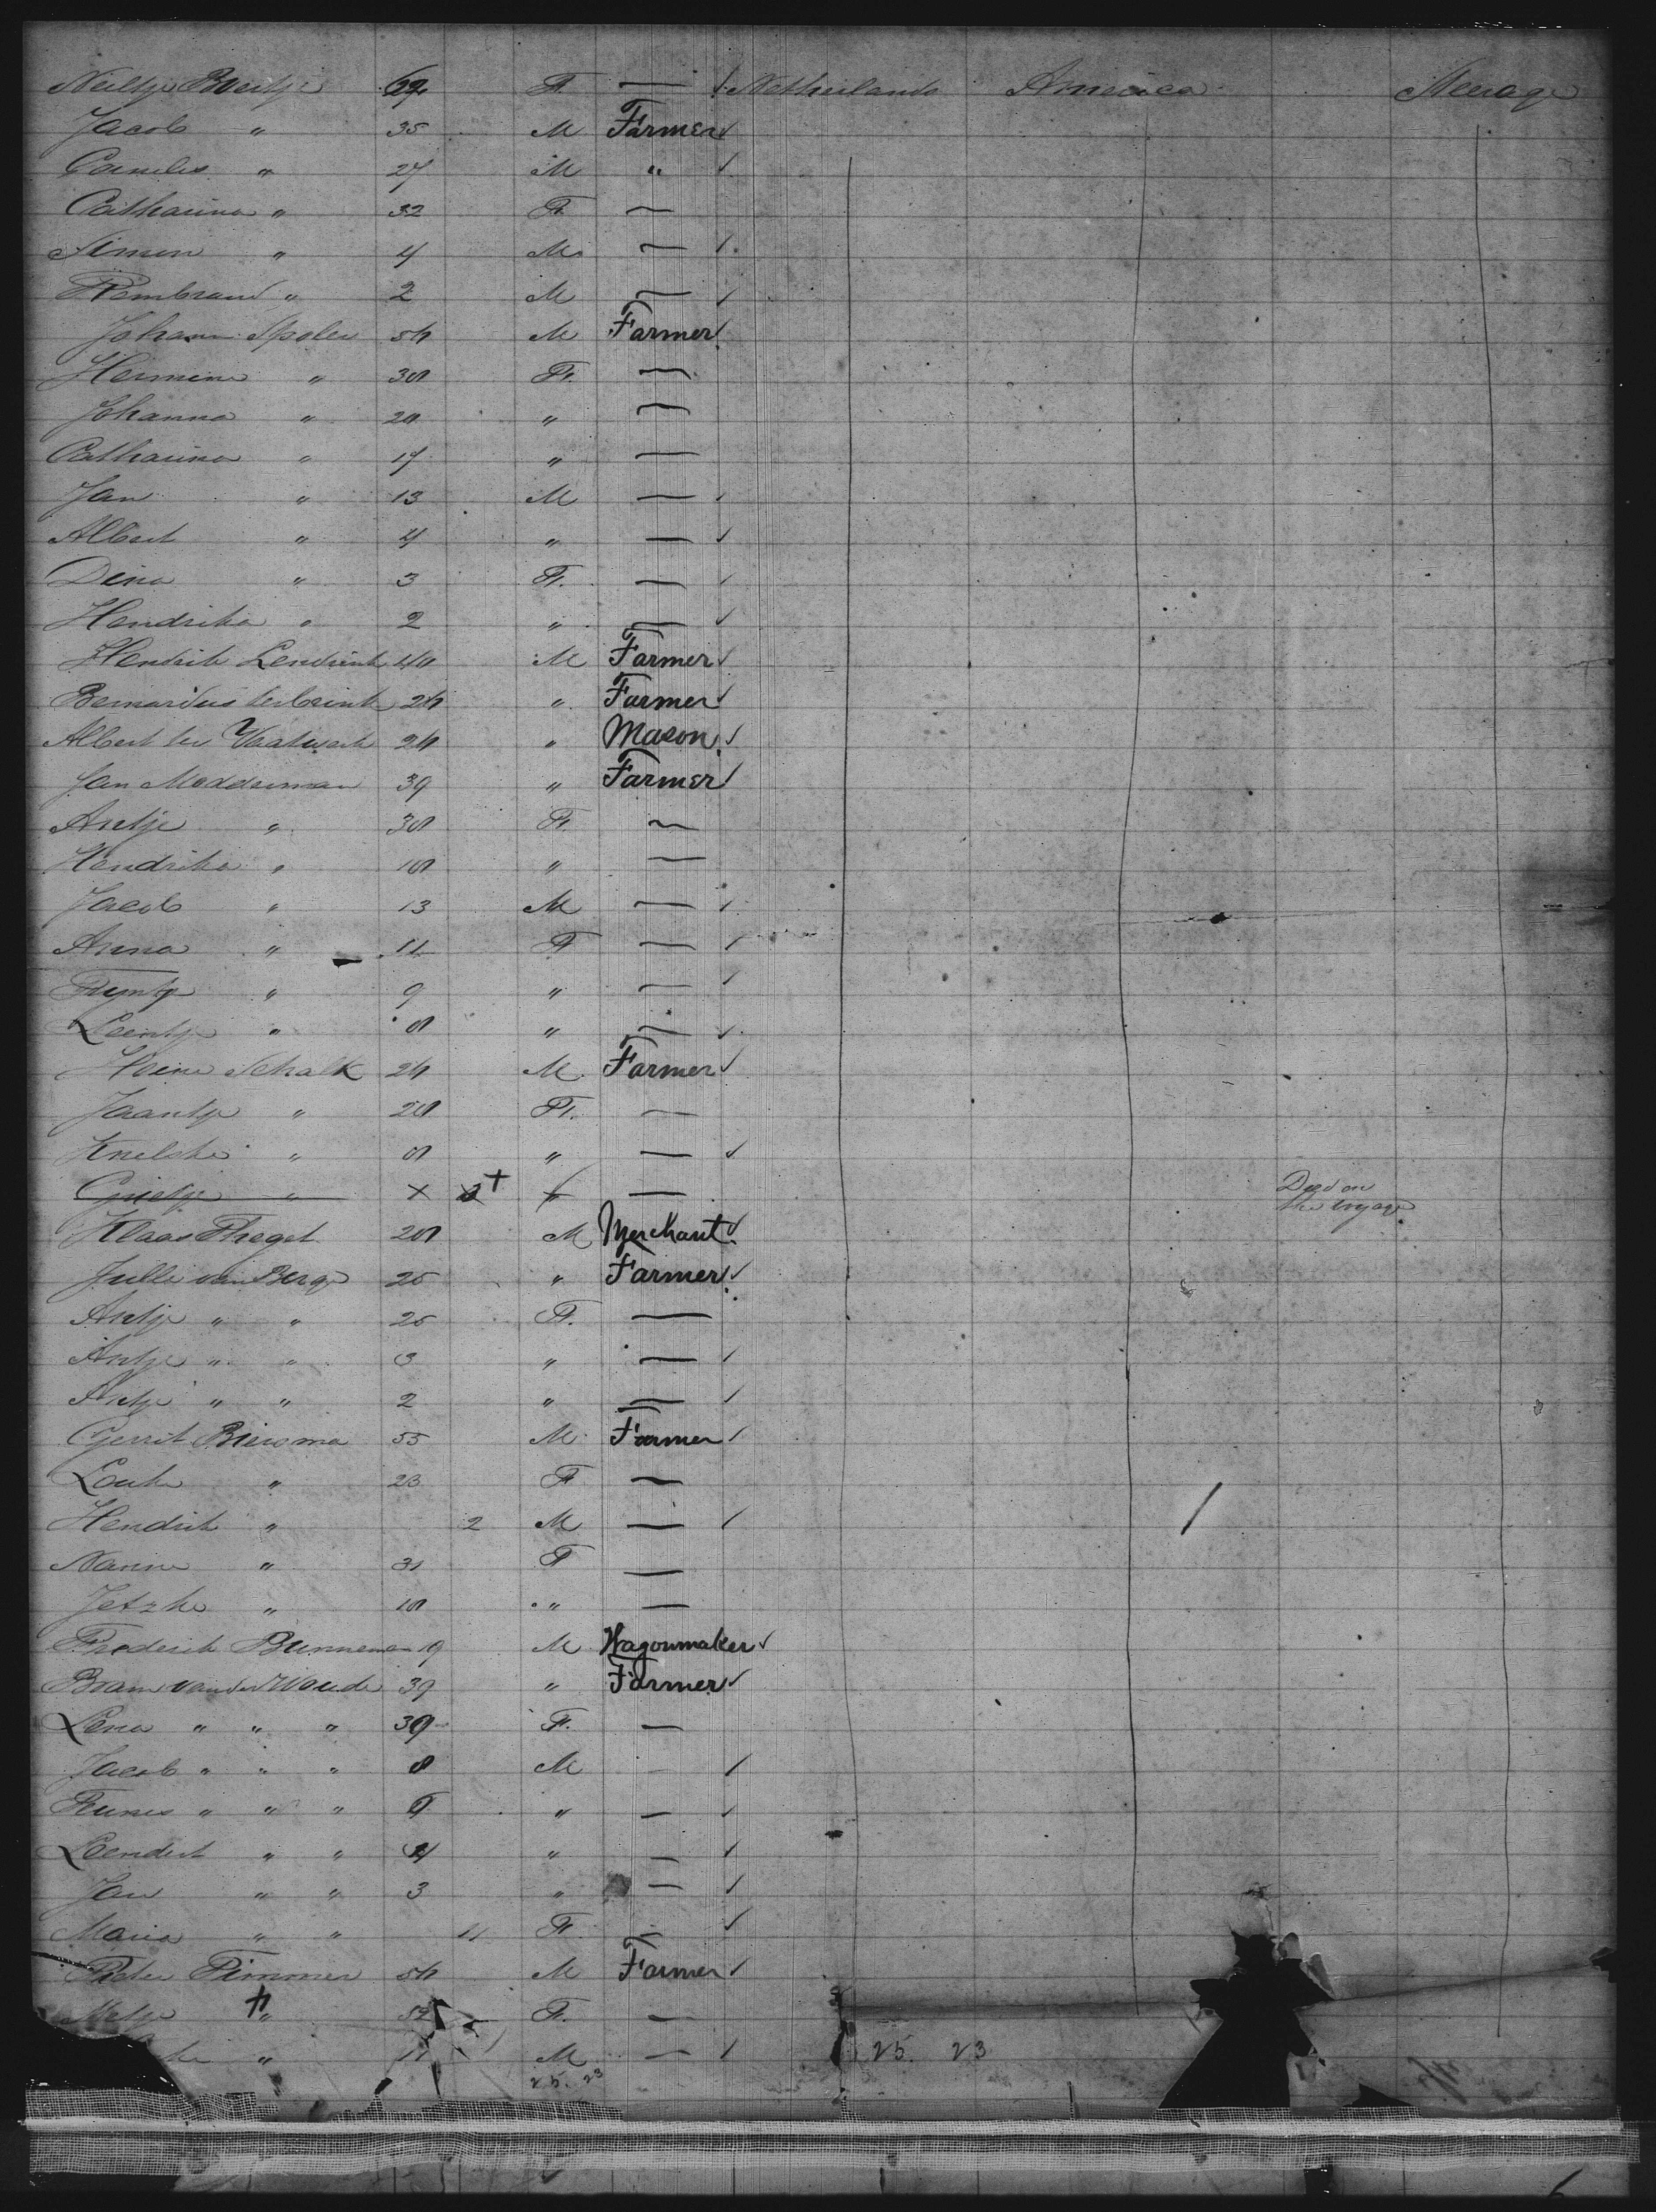 Neeltje Buitje 69 F. — Netherlands America Steerage
Jacob " 35 M Farmer
Cornelis " 27 M "
Catharina " 32 F. —
Simon " 4 M —
Rembrand " 2 M —
Johann Spolen 54 M Farmer
Hermina " 38 F. —
Johanna " 20 " —
Catharina " 17 " —
Jan " 13 M —
Albert " 4 " —
Dina " 3 F. —
Hendrika " 2 " —
Hendrik Lendrink 40 M Farmer
Bernardus terbrink 24 " Farmer
Albert ter 24 " Mason
Jan Modderman 39 " Farmer
Antje " 38 F. —
Hendrika " 18 " —
Jacob " 13 M —
Anna " 11 F —
Tryntje " 9 " —
Leentje " 8 " —
Schalk 24 M. Farmer
Jaantje " 28 F. —
Knelske " 8 " —
Grietje " × " — Died on the voyage
Klaas 28 M Merchant
Julle van Berge 25 " Farmer
Antje " " 25 F. —
Antje " " 3 " —
Antje " " 2 " —
Gerrit Biersma 55 M Farmer
Louke " 23 F —
Hendrik " 2 M —
Nanne " 31 F —
Jetzke " 18 " —
Frederik Bunnema 19 M Wagonmaker
Bram van der Woude 39 " Farmer
Lena " " " 39 F. —
Jacob " " " 8 M —
Teunis " " " " —
Leendert " " 4 " —
Jan " " 3 " —
Maria " " 11 F —
Pieter Timmer 54 M Farmer
Metje " 52 F. —
" 11 M — 25. 23
25. 23